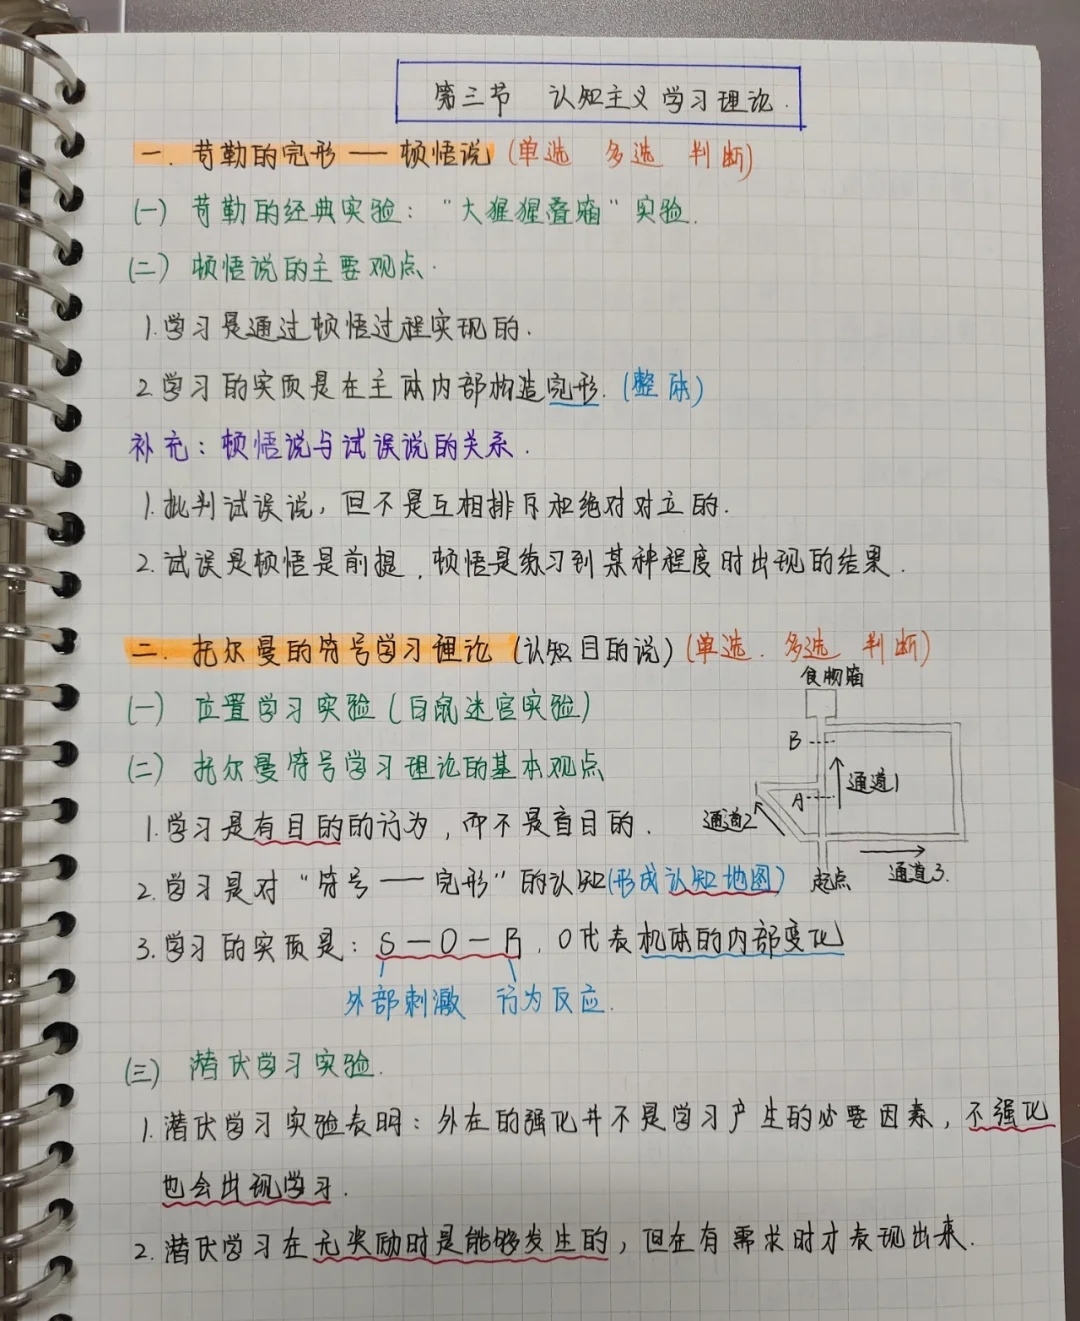 第三节 认知主义学习理论.
一. 苛勒的完形——顿悟说 (单选 多选 判断)
(一) 苛勒的经典实验："大猩猩叠箱"实验.
(二) 顿悟说的主要观点.
1.学习是通过顿悟过程实现的.
2.学习的实质是在主体内部构造完形.(整体)
补充：顿悟说与试误说的关系.
1.批判试误说，但不是互相排斥和绝对对立的.
2.试误是顿悟是前提,顿悟是练习到某种程度时出现的结果.
二. 托尔曼的符号学习理论 (认知目的说) (单选. 多选 判断)
食物箱
(一) 位置学习实验 (白鼠迷宫实验)
B
(二) 托尔曼符号学习理论的基本观点
通道1
A
1.学习是有目的的行为，而不是盲目的.
通道2
2.学习是对"符号——完形"的认知(形成认知地图)
起点
通道3.
3.学习的实质是：S－O－R，O代表机体的内部变化
外部刺激 行为反应.
(三) 潜伏学习实验.
1.潜伏学习实验表明：外在的强化并不是学习产生的必要因素，不强化
也会出现学习.
2.潜伏学习在无奖励时是能够发生的，但在有需求时才表现出来.